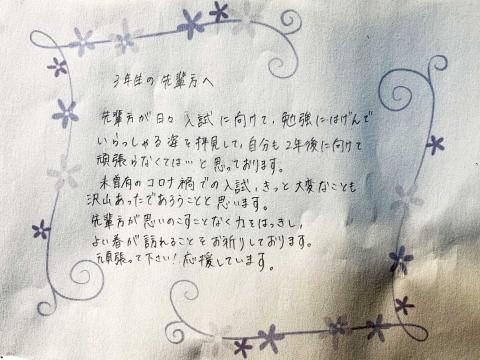 3年生の先輩方へ
先輩方が日々入試に向けて、勉強にはげんで
いらっしゃる姿を拝見して、自分も2年後に向けて
頑張らなくては…と思っております。
未曽有のコロナ禍での入試、きっと大変なことも
沢山あったであろうことと思います。
先輩方が思いのこすことなく力をはっきし、
よい春が訪れることをお祈りしております。
頑張って下さい!応援しています。